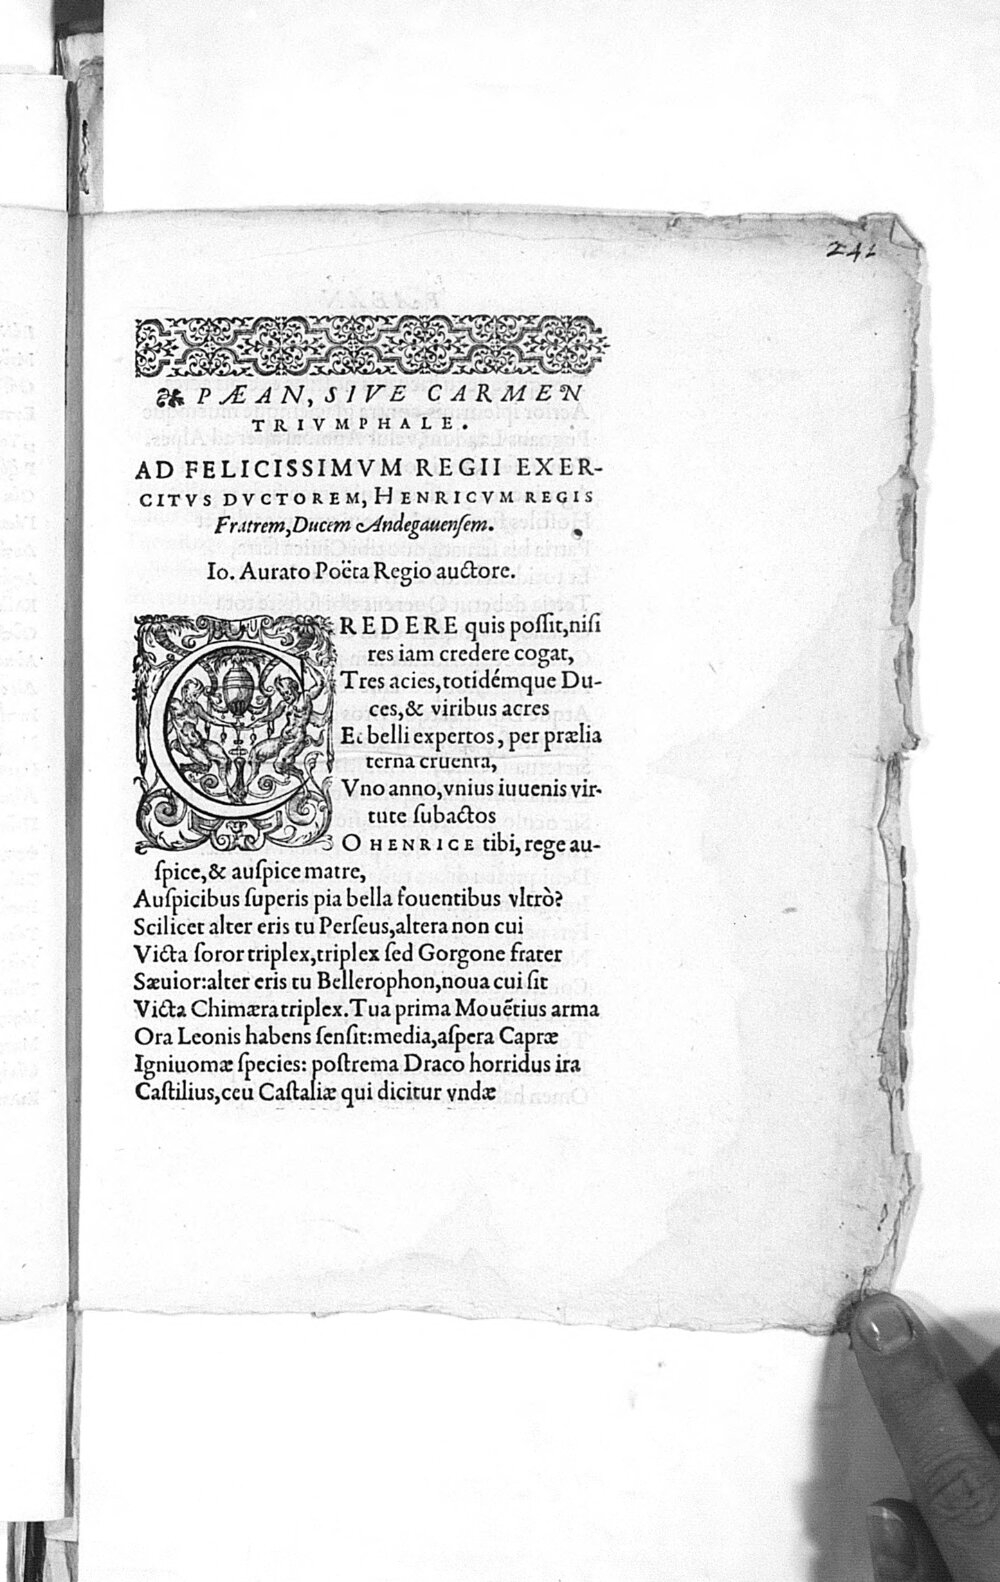 241
PÆAN, SIVE CARMEN
TRIVMPHALE.
AD FELICISSIMVM REGII EXER-
CITVS DVCTOREM, HENRICVM REGIS
Fratrem, Ducem Andegauensem.
Io. Aurato Poëta Regio auctore.
CREDERE quis poſſit, niſi
res iam credere cogat,
Tres acies, totidémque Du-
ces, & viribus acres
Et belli expertos, per prælia
terna cruenta,
Vno anno, vnius iuuenis vir-
tute ſubactos
O HENRICE tibi, rege au-
ſpice, & auſpice matre,
Auſpicibus ſuperis pia bella fouentibus vltrò?
Scilicet alter eris tu Perſeus, altera non cui
Victa ſoror triplex, triplex ſed Gorgone frater
Sæuior: alter eris tu Bellerophon, noua cui ſit
Victa Chimæra triplex. Tua prima Mouẽtius arma
Ora Leonis habens ſenſit: media, aſpera Capræ
Igniuomæ ſpecies: poſtrema Draco horridus ira
Caſtilius, ceu Caſtaliæ qui dicitur vndæ